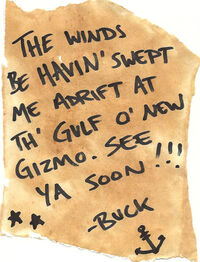 THE WINDS
BE HAVIN' SWEPT
ME ADRIFT AT
TH' GULF O' NEW
GIZMO. SEE
YA SOON!!!
-BUCK